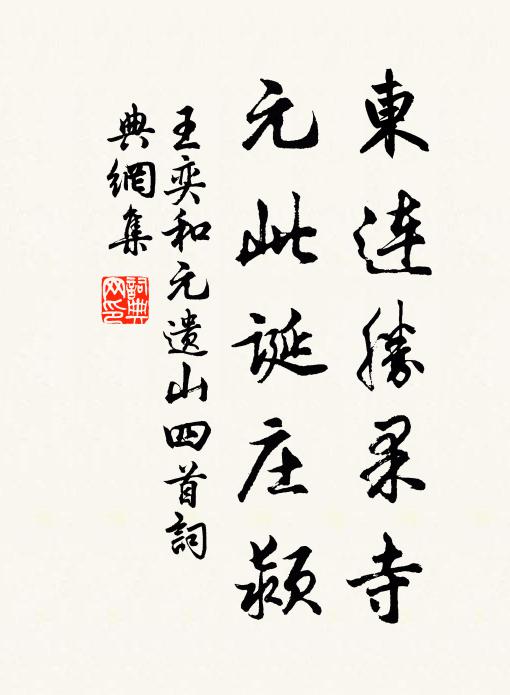 東連勝果寺
元此誕庄
王奕和元遺山四首詞
典網集
詞典
网印